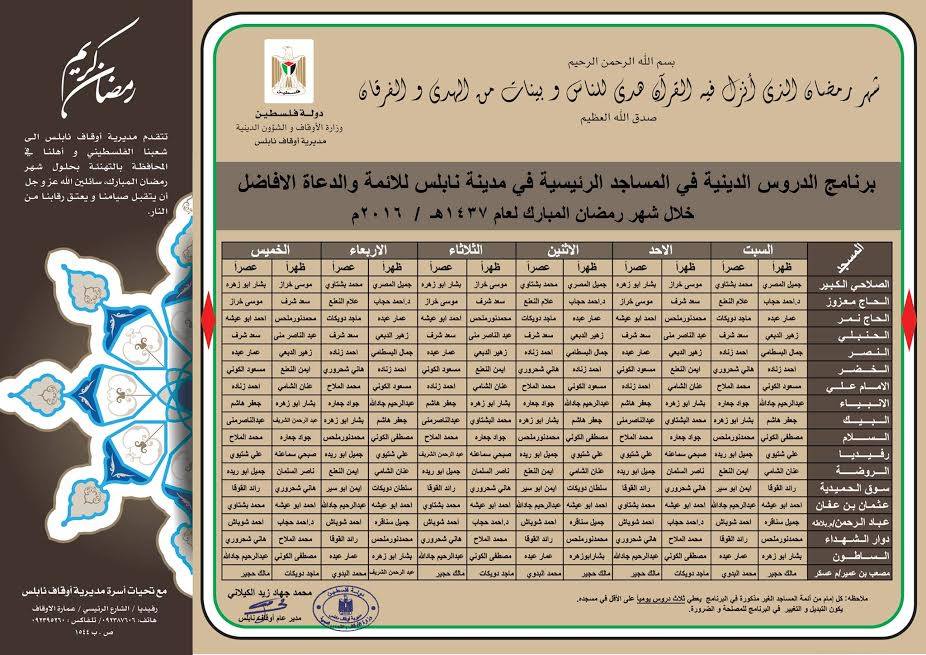 رمضان كريم
تتقدم مديرية أوقاف نابلس الى
شعبنا الفلسطيني و أهلنا في
المحافظة بالتهنئة بحلول شهر
رمضان المبارك، سائلين الله عز و جل
أن يتقبل صيامنا و يعتق رقابنا من
النار.
مع تحيات أسرة مديرية أوقاف نابلس
رفيديا / الشارع الرئيسي / عمارة الاوقاف
هاتف: ٠٩٢٣٨٧٦٠٦ / تلفاكس : ٠٩٢٣٩٥٢٦٠
ص . ب ١٥٤٤
بسم الله الرحمن الرحيم
شهر رمضان الذي أنزل فيه القرآن هدى للناس و بينات من الهدى و الفرقان
صدق الله العظيم
فلسطين
دولة فلسطين
وزارة الأوقاف و الشؤون الدينية
مديرية أوقاف نابلس
برنامج الدروس الدينية في المساجد الرئيسية في مدينة نابلس للائمة والدعاة الافاضل
خلال شهر رمضان المبارك لعام ١٤٣٧هـ / ٢٠١٦م
المسجد السبت الاحد الاثنين الثلاثاء الاربعاء الخميس
ظهراً عصراً ظهراً عصراً ظهراً عصراً ظهراً عصراً ظهراً عصراً ظهراً عصراً
الصلاحي الكبير جميل المصري محمد بشتاوي موسى خراز بشار ابو زهره جميل المصري محمد بشتاوي موسى خراز بشار ابو زهره جميل المصري محمد بشتاوي موسى خراز بشار ابو زهره
الحاج معزوز د.احمد حجاب علام النعنع سعد شرف موسى خراز د.احمد حجاب علام النعنع سعد شرف موسى خراز د.احمد حجاب علام النعنع سعد شرف موسى خراز
الحاج نمر عمار عبده ماجد دويكات محمدنورملحص احمد ابو عيشه عمار عبده ماجد دويكات محمدنورملحص احمد ابو عيشه عمار عبده ماجد دويكات محمدنورملحص احمد ابو عيشه
الحنبلي زهير الدبعي سعد شرف عبد الناصر منى سعد شرف زهير الدبعي سعد شرف عبد الناصر منى سعد شرف زهير الدبعي سعد شرف عبد الناصر منى سعد شرف
النصر جمال البسطامي احمد زناده زهير الدبعي عمار عبده جمال البسطامي احمد زناده زهير الدبعي عمار عبده جمال البسطامي احمد زناده زهير الدبعي عمار عبده
الخضر احمد زناده هاني شحروري ايمن النعنع مسعود الكوني احمد زناده هاني شحروري ايمن النعنع مسعود الكوني احمد زناده هاني شحروري ايمن النعنع مسعود الكوني
الامام علي مسعود الكوني محمد الملاح عنان الشامي احمد زناده مسعود الكوني محمد الملاح عنان الشامي احمد زناده مسعود الكوني محمد الملاح عنان الشامي احمد زناده
الانبياء عبدالرحيم جادالله جواد جعاره بشار ابو زهره جعفر هاشم عبدالرحيم جادالله جواد جعاره بشار ابو زهره جعفر هاشم عبدالرحيم جادالله جواد جعاره بشار ابو زهره جعفر هاشم
البيك جعفر هاشم بشار ابو زهره محمد البشتاوي عبدالناصرمنى جعفر هاشم بشار ابو زهره محمد البشتاوي عبدالناصرمنى جعفر هاشم بشار ابو زهره عبد الرحمن الشريف عبدالناصرمنى
السلام محمدنورملحص مصطفى الكوني جواد جعاره محمد الملاح محمدنورملحص مصطفى الكوني جواد جعاره محمد الملاح محمدنورملحص مصطفى الكوني جواد جعاره محمد الملاح
رفيديا علي شتيوي جميل ابو ريده صبحي سماعنه علي شتيوي علي شتيوي جميل ابو ريده صبحي سماعنه عبد الرحمن الشريف علي شتيوي جميل ابو ريده صبحي سماعنه علي شتيوي
الروضة عنان الشامي ايمن النعنع ناصر السلمان جميل ابو ريده عنان الشامي ايمن النعنع ناصر السلمان جميل ابو ريده عنان الشامي ايمن النعنع ناصر السلمان جميل ابو ريده
سوق الحميدية رائد القوقا ايمن ابو سير هاني شحروري رائد القوقا سلطان دويكات ايمن ابو سير هاني شحروري رائد القوقا سلطان دويكات ايمن ابو سير هاني شحروري رائد القوقا
عثمان بن عفان احمد ابو عيشه عبدالرحيم جادالله احمد ابو عيشه محمد بشتاوي احمد ابو عيشه عبدالرحيم جادالله احمد ابو عيشه محمد بشتاوي احمد ابو عيشه عبدالرحيم جادالله احمد ابو عيشه محمد بشتاوي
عباد الرحمن جميل سناقره احمد شوباش د.احمد حجاب احمد شوباش جميل سناقره احمد شوباش د.احمد حجاب احمد شوباش جميل سناقره احمد شوباش د.احمد حجاب احمد شوباش
دوار الشهداء محمدنورملحص رائد القوقا محمد الملاح هاني شحروري محمدنورملحص رائد القوقا محمد الملاح هاني شحروري محمدنورملحص رائد القوقا محمد الملاح هاني شحروري
الساطون بشار ابو زهره عمار عبده مصطفى الكوني عبدالرحيم جادالله بشارابوزهره عمار عبده مصطفى الكوني عبدالرحيم جادالله بشار ابو زهره عمار عبده مصطفى الكوني عبدالرحيم جادالله
مصعب بن عمير/م عسكر مالك حجير محمد البدوي ماجد دويكات مالك حجير مالك حجير محمد البدوي ماجد دويكات مالك حجير عبد الرحمن الشريف محمد البدوي ماجد دويكات مالك حجير
ملاحظه: كل إمام من أئمة المساجد الغير مذكورة في البرنامج يعطي ثلاث دروس يومياً على الأقل في مسجده.
يكون التبديل و التغيير في البرنامج للمصلحة و الضرورة.
محمد جهاد زيد الكيلاني
مدير عام أوقاف نابلس